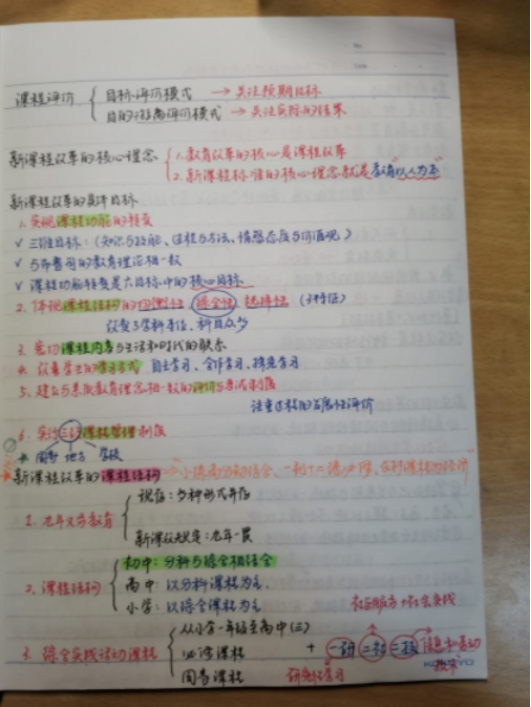 课程评价 { 目标评价模式 → 关注预期目标
目的游离评价模式 → 关注实际的结果
新课程改革的核心理念 { 1.教育改革的核心是课程改革
2.新课程标准的核心理念就是教育"以人为本"
新课程改革的具体目标
1.实现课程功能的转变
√ 三维目标:(知识与技能、过程与方法、情感态度与价值观)
√ 与布鲁姆的教育理论相一致
√ 课程功能转变是六目标中的核心目标
2.体现课程结构的均衡性 综合性 选择性 (3特征)
改变学科本位、科目众多
3.密切课程内容与生活和时代的联系
4.改善学生的学习方式 自主学习、合作学习、探究学习
5.建立与素质教育理念相一致的评价与考试制度
注重过程的发展性评价
6.实行三级课程管理制度
国家 地方 学校
新课程改革的课程结构
1.九年义务教育 { 现在:多种形式并存
新课改规定:九年一贯
2.课程结构 { 初中:分科与综合相结合
高中:以分科课程为主
小学:以综合课程为主
社区服务+社会实践
3.综合实践活动课程 { 从小学一年级至高中(三)
必修课程 +
国家课程
研究性学习
KOKUYO